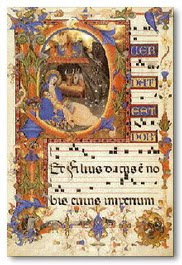 P UER
EST
NOB
Et filius datus ē no
bis cuius imperium